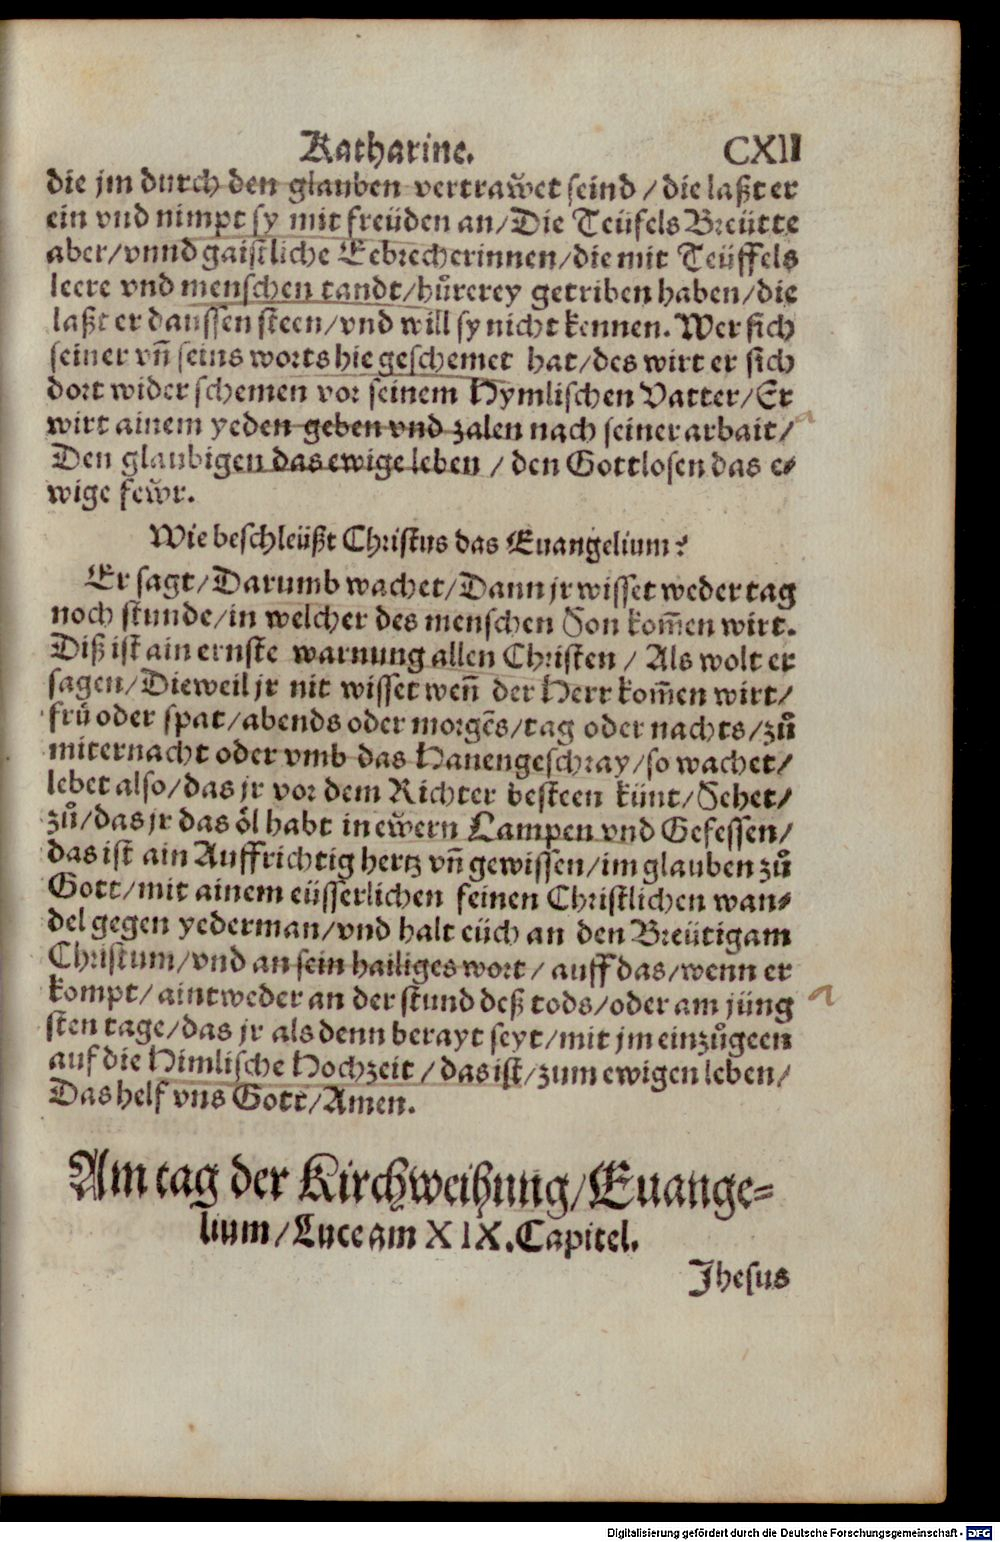 Katharine. CXII
die jm durch den glauben vertraẘet seind / die laßt er
ein vnd nimpt sy mit freüden an/Die Teüfels Breütte
aber/vnnd gaistliche Eebrecherinnen/die mit Teüffels
leere vnd menschen tandt/hůrerey getriben haben/die
laßt er daussen steen/vnd will sy nicht kennen. Wer sich
seiner vñ seins worts hie geschemet hat/des wirt er sich
dort wider schemen vor seinem Hymlischen Vatter/Er
wirt ainem yeden geben vnd zalen nach seiner arbait/
Den glaubigen das ewige leben / den Gottlosen das e⸗
wige feẘr.
Wie beschleüßt Christus das Euangelium?
Er sagt/Darumb wachet/Dann jr wisset weder tag
noch stunde/in welcher des menschen Son kom̃en wirt.
Diß ist ain ernste warnung allen Christen / Als wolt er
sagen/Dieweil jr nit wisset wen̄ der Herr kom̃en wirt/
frů oder spat/abends oder morgēs/tag oder nachts/zů
miternacht oder vmb das Hanengeschray/so wachet/
lebet also/das jr vor dem Richter besteen künt/Sehet/
zů/das jr das öl habt in eẘern Lampen vnd Gefessen/
das ist ain Auffrichtig hertz vñ gewissen/im glauben zů
Gott/mit ainem eüsserlichen feinen Christlichen wan⸗
del gegen yederman/vnd halt eüch an den Breütigam
Christum/vnd an sein hailiges wort / auff das/wenn er
kompt/aintweder an der stund deß tods/oder am jüng
sten tage/das jr als denn berayt seyt/mit jm einzůgeen
auf die Himlische Hochzeit / das ist/zum ewigen leben/
Das helf vns Gott/Amen.
Am tag der Kirchweihung/Euange⸗
lium/Luce am XIX. Capitel.
Jhesus
Digitalisierung gefördert durch die Deutsche Forschungsgemeinschaft - DFG